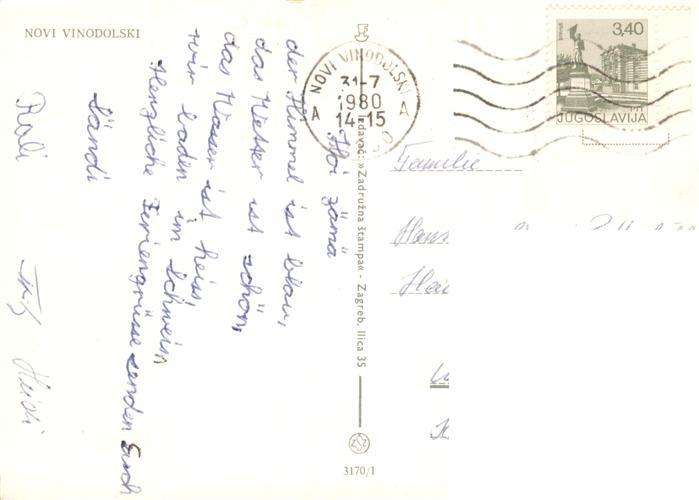 NOVI VINODOLSKI
Hoi zämä
der Himmel ist blau,
das Wetter ist schön,
das Wasser ist heiss,
wir baden im Schweiss,
Herzliche Feriengrüsse senden Euch
Sändi
Ruli Heidi
NOVI VINODOLSKI
31-7
1980
14-15
A A
Izdavač: »Zadružna štampa« - Zagreb, Ilica 35
ZŠZ
3170/1
3,40
JUGOSLAVIJA
Familie
Hans